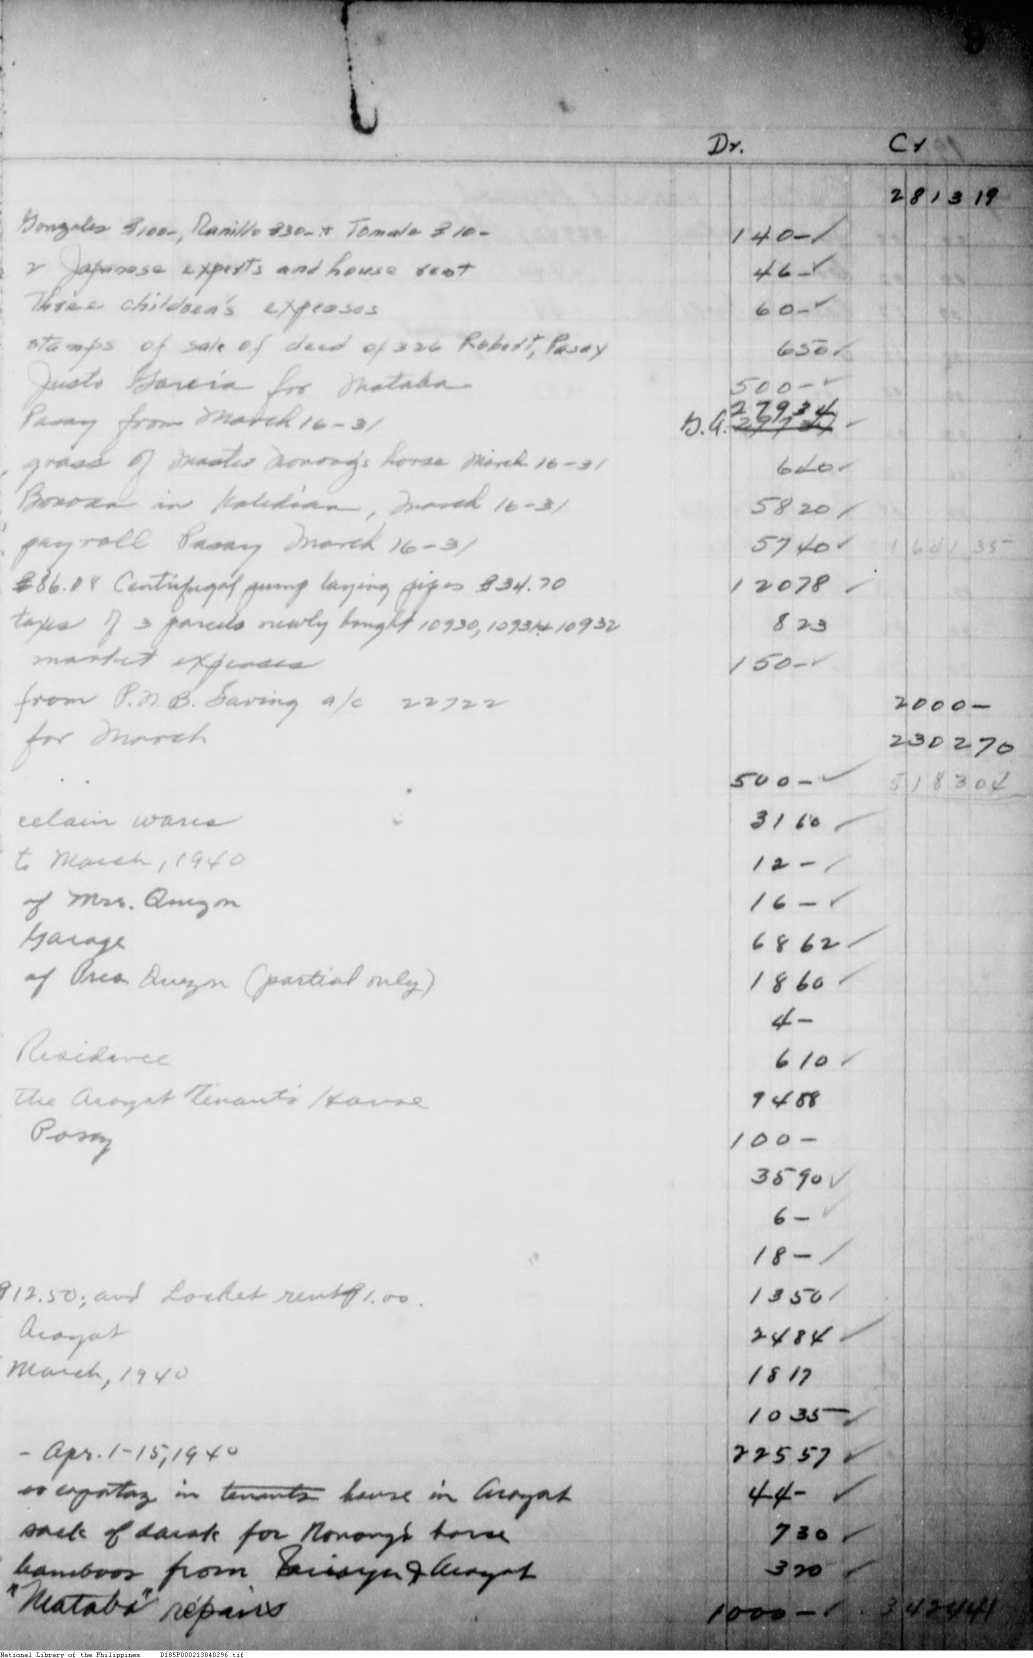 Dr. Cr
281319
Gonzales ₱100-, Ramillo ₱30- + Tomale ₱10- 140-✓
2 Japanese experts and house rent 46-✓
Three children's expenses 60-✓
stamps of sale of deed of 326 Robert, Pasay 650✓
Justo Garcia for Mataba 500-✓
27934
Pasay from March 16-31 G.A. ✓
grass of Master Nonong's horse March 16-31 640✓
in, March 16-31 5820✓
payroll Pasay March 16-31 5740✓ 164135
₱86.08 Centrifugal pump laying pipes ₱34.70 12078 ✓
taxes of 3 parcels newly bought 10930, 10931 + 10932 823
market expenses 150-✓
from P.N.B. Saving a/c 22722 2000-
for March 230270
500-✓ 518304
celain wares 3160 ✓
to March, 1940 12-✓
of Mrs. Quezon 16-✓
Garage 6862✓
of Pres Quezon (partial only) 1860✓
4-
Residence 610✓
the Arayat Tenant's House 9488
Pasay 100-
3590✓
6-✓
18-✓
₱12.50; and Locket rent ₱1.00. 1350✓
Arayat 2484✓
March, 1940 1817
1035✓
- Apr. 1-15, 1940 22557✓
in tenants house in Arayat 44-✓
sack of darak for Nonong's horse 730✓
bamboos from & Arayat 320✓
"Mataba" repairs 1000-✓ 342441
National Library of the Philippines D185P000213040296.tif